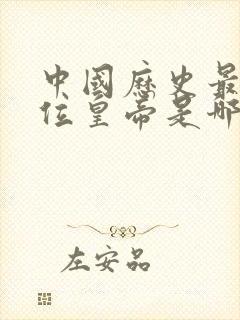 中國歷史最
位皇帝是哪
左安品